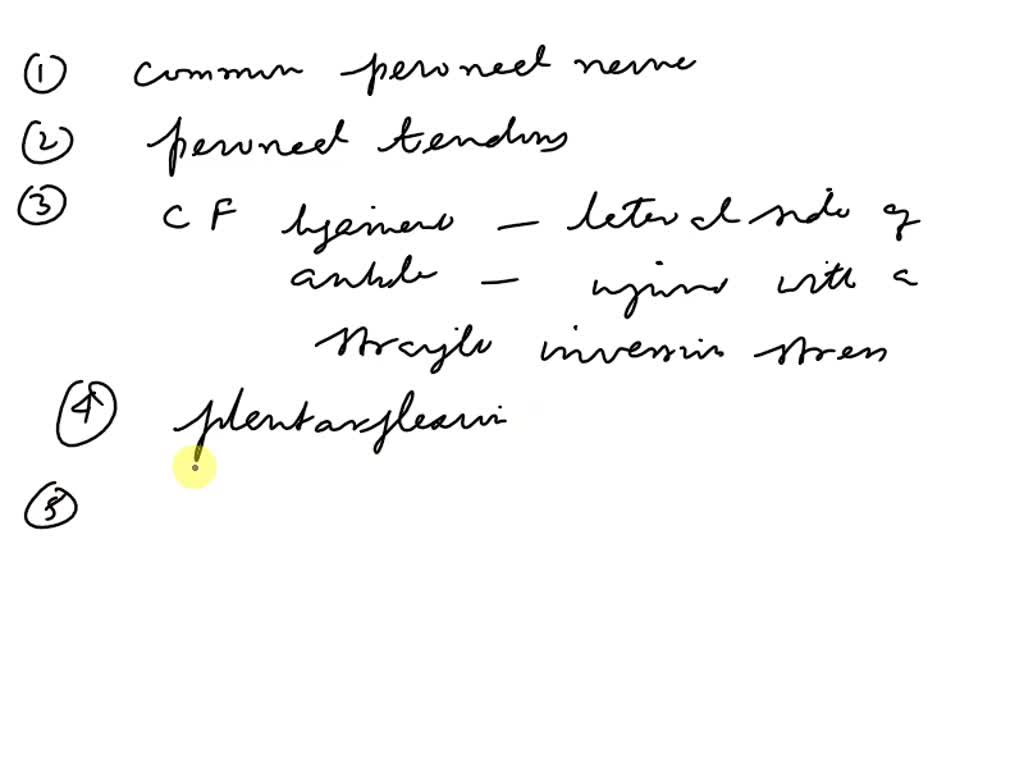 ① common peroneal nerve
② peroneal tendons
③ CF ligament – lateral side of
ankle – injured with a
straight inversion stress
④ plantarflexion
⑤